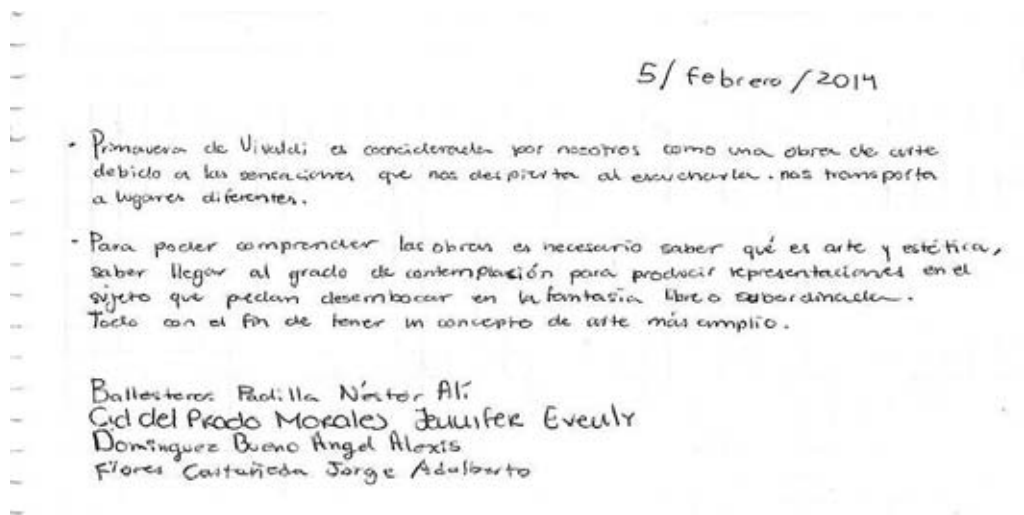 5/febrero/2014
· Primavera de Vivaldi es considerada por nosotros como una obra de arte
debido a las sensaciones que nos despierta al escucharla. nos transporta
a lugares diferentes.
· Para poder comprender las obras es necesario saber qué es arte y estética,
saber llegar al grado de contemplación para producir representaciones en el
sujeto que puedan desembocar en la fantasía libre o subordinada.
Todo con el fin de tener un concepto de arte más amplio.
Ballesteros Padilla Néstor Alí
Cid del Prado Morales Jennifer Evenly
Domínguez Bueno Angel Alexis
Flores Castañeda Jorge Adalberto